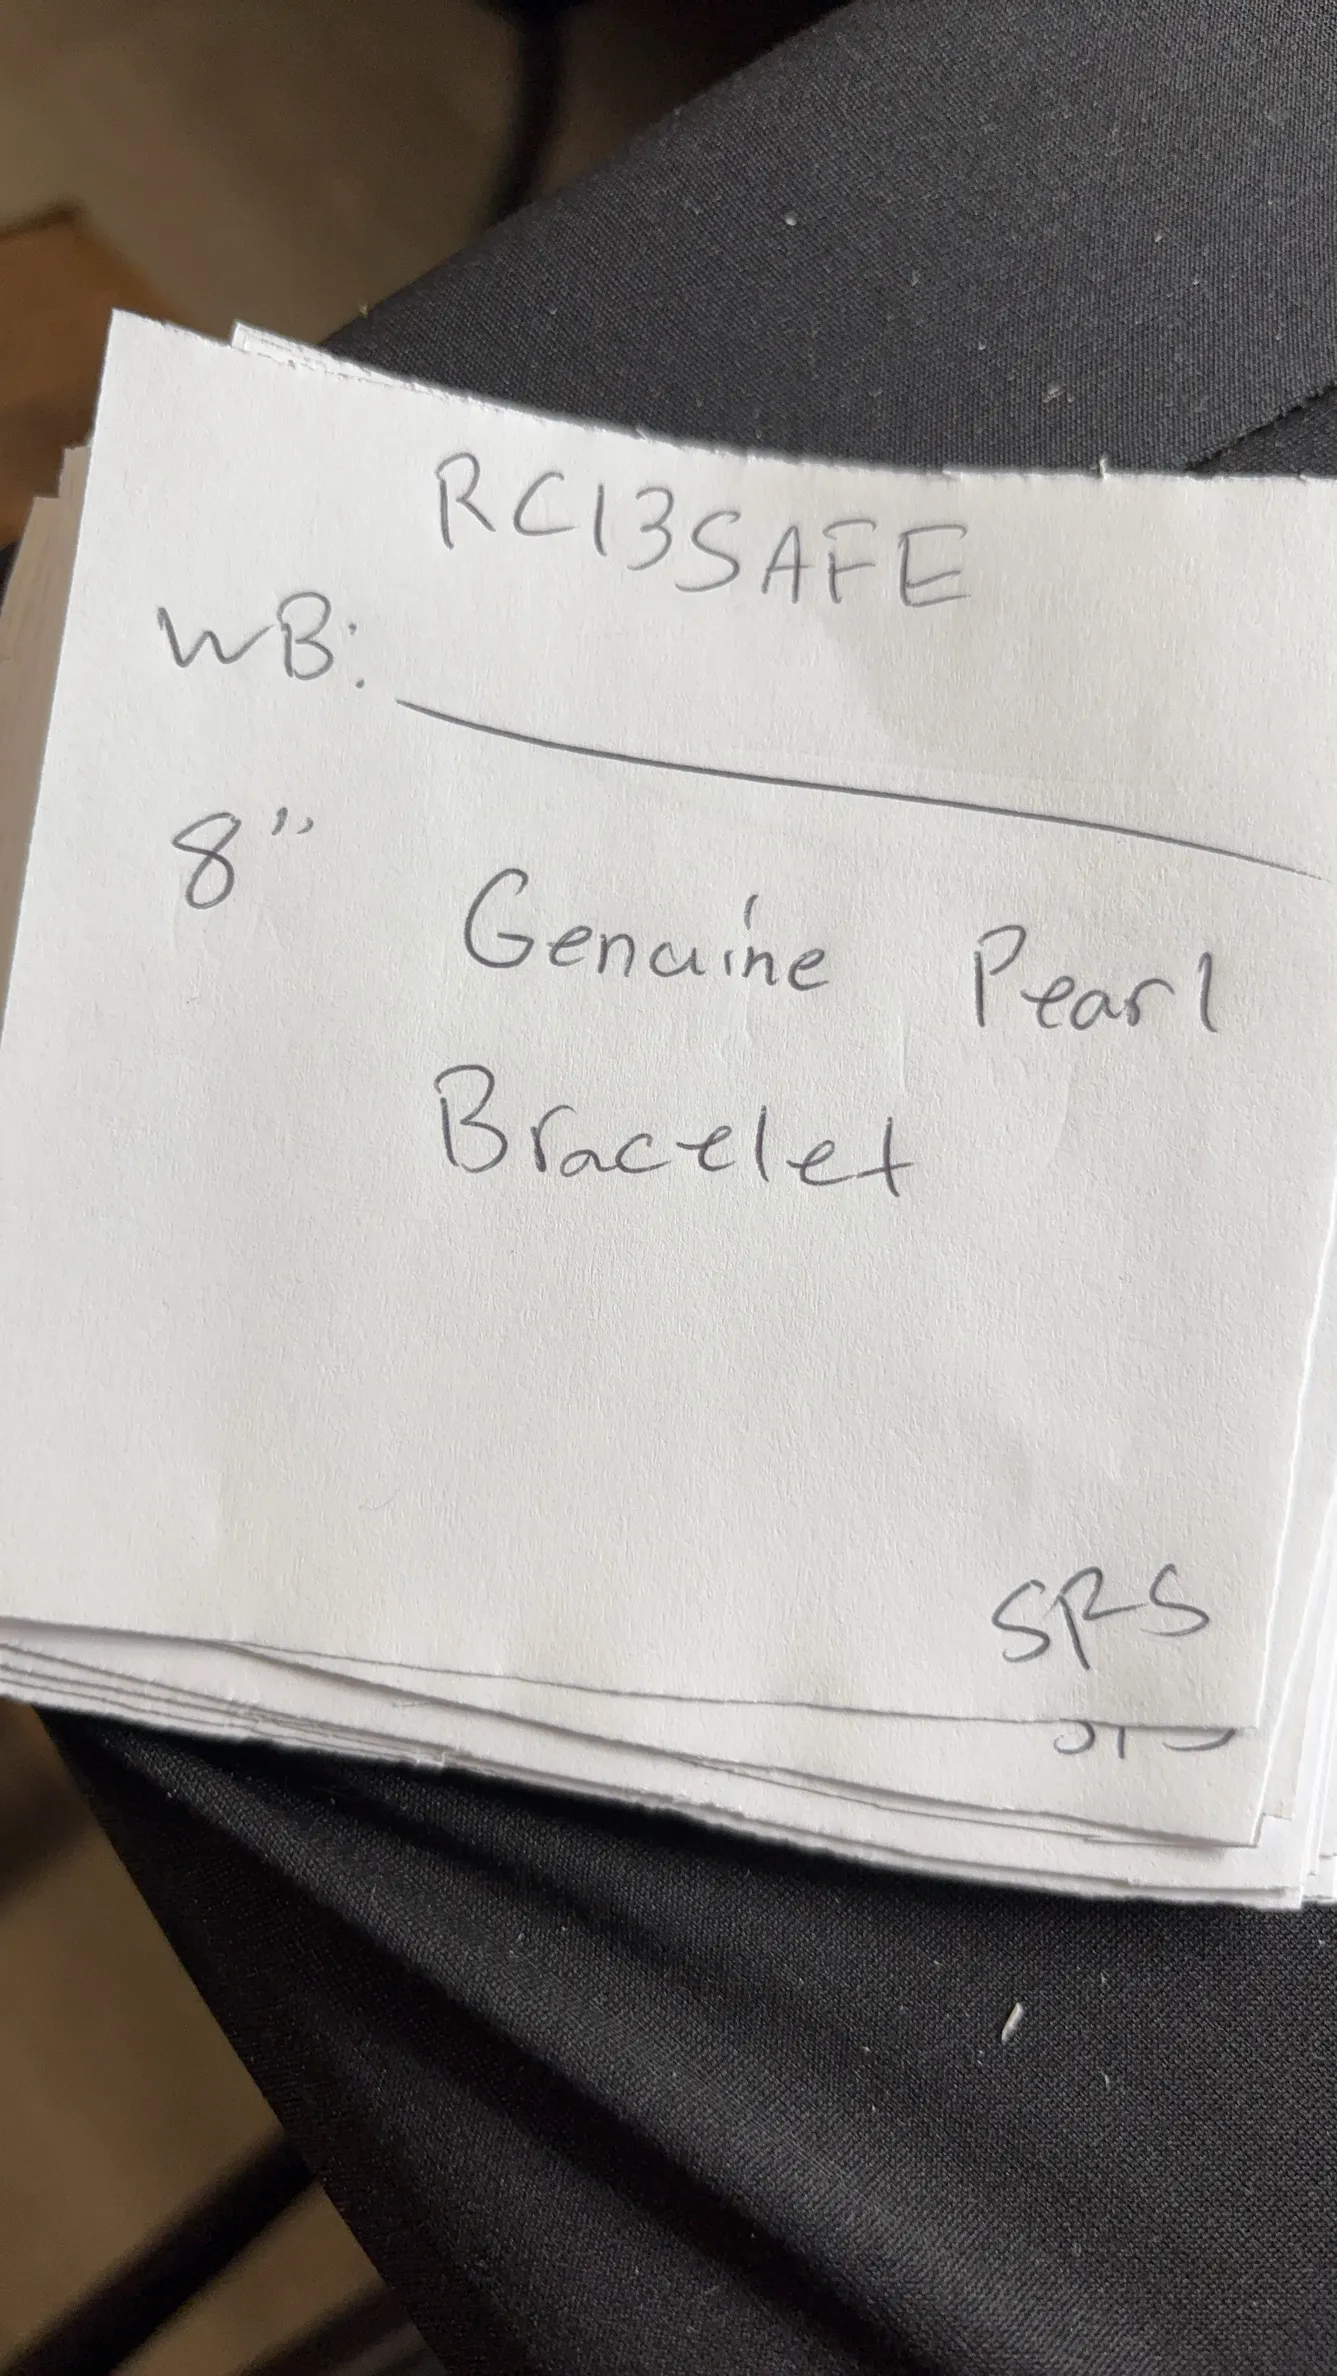 RC13SAFE
WB:
8" Genuine Pearl
Bracelet
SRS